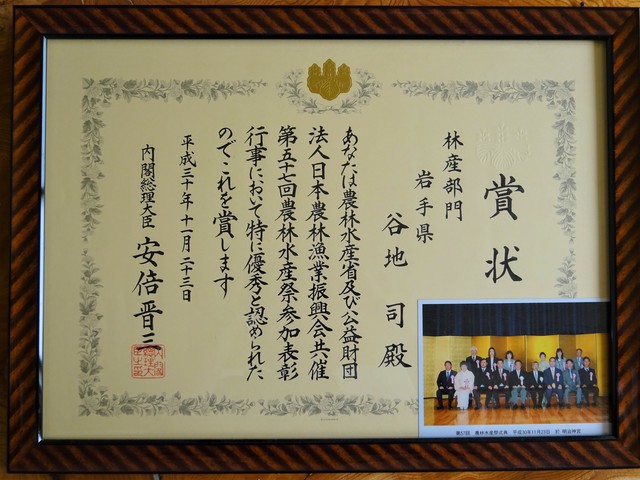 賞状
林産部門
岩手県
谷地 司殿
あなたは農林水産省及び公益財団
法人日本農林漁業振興会共催
第五十七回農林水産祭参加表彰
行事において特に優秀と認められた
のでこれを賞します
平成三十年十一月二十三日
内閣総理大臣 安倍晋三
第57回 農林水産祭式典 平成30年11月23日 於 明治神宮